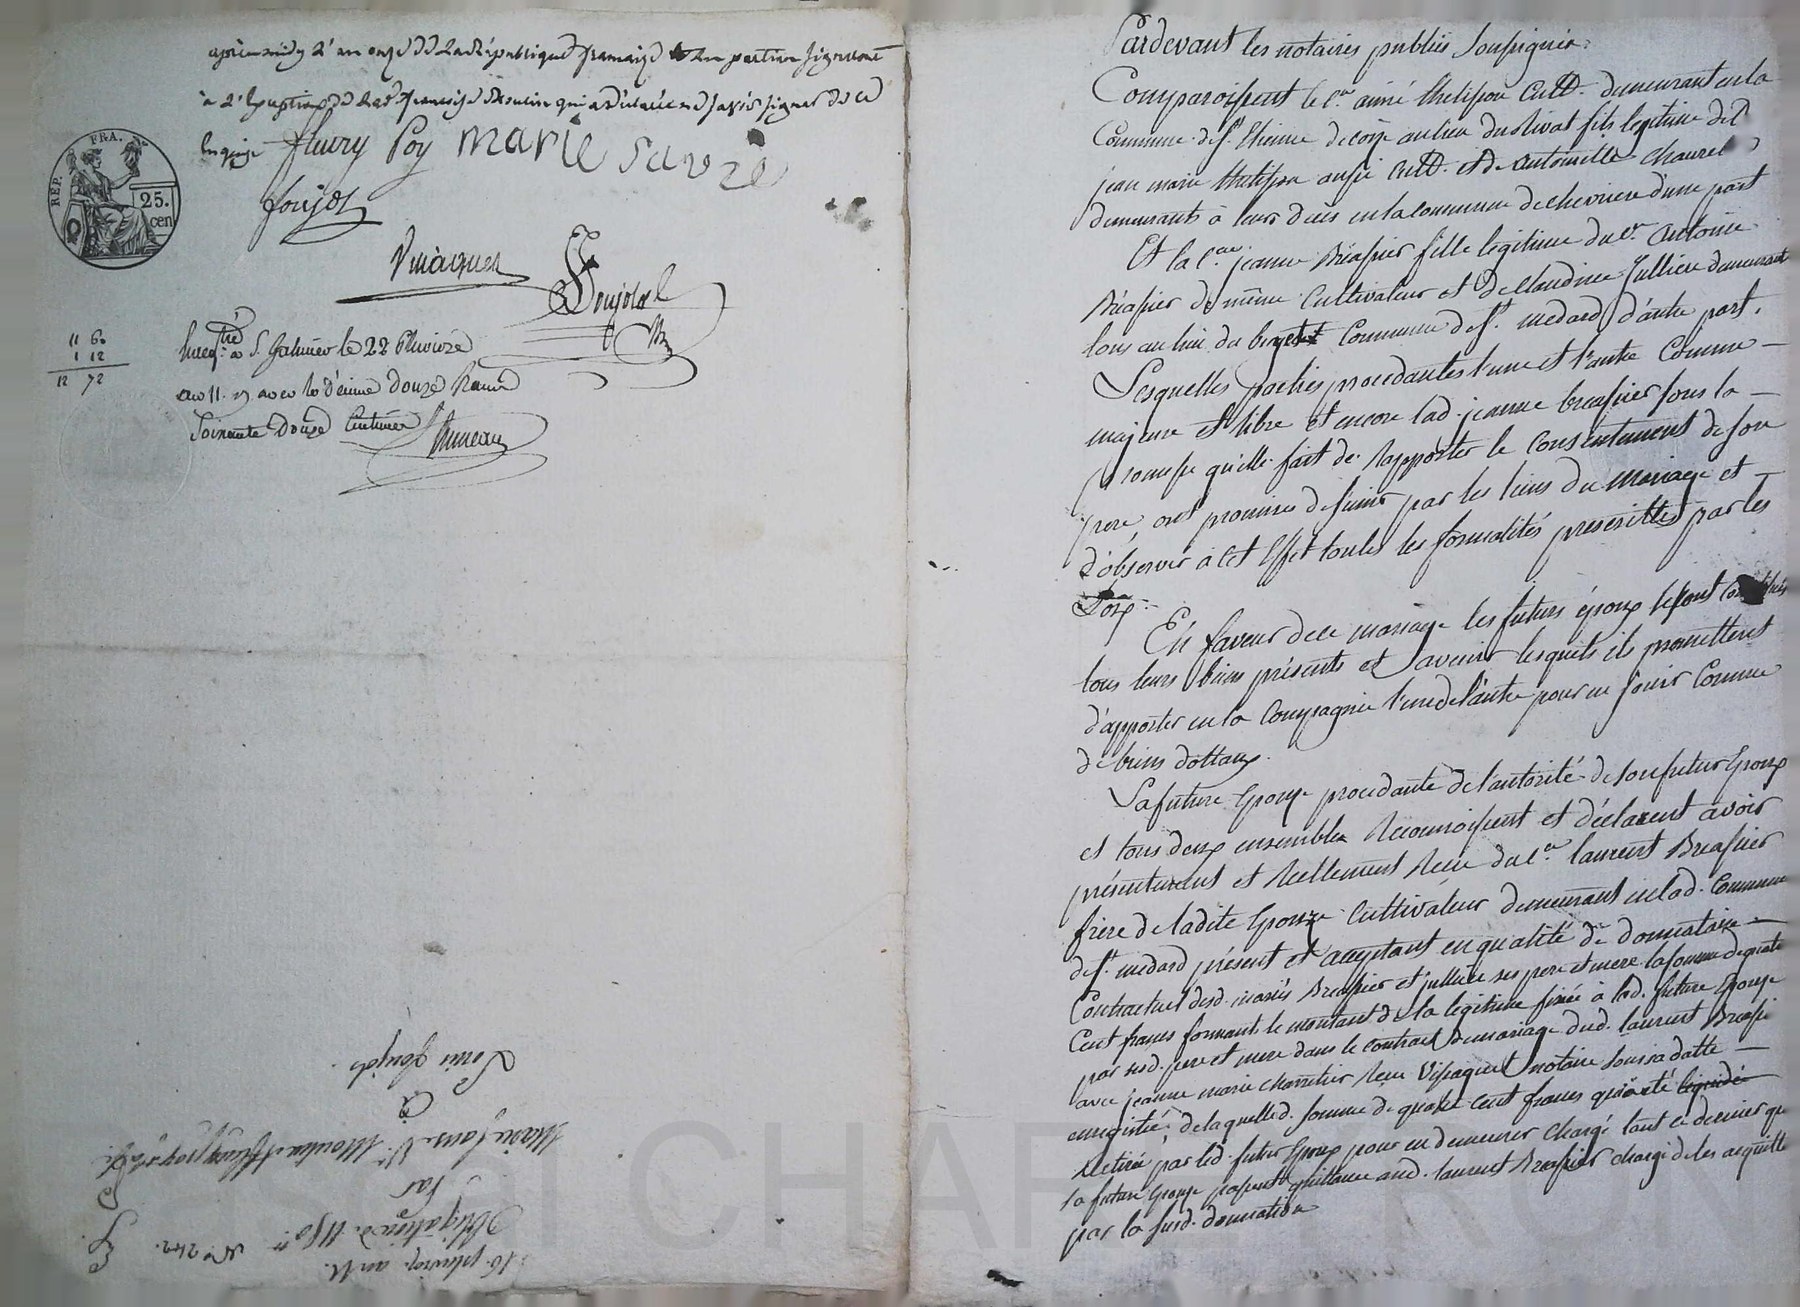 après midy l'an onze de la République française les parties signeront
à l'exception de lad. françoise Moulin qui a déclaré ne savoir signer de ce
enquise fleury Poy marie savre
goujot
REP. FRA.
25.
cen
Vinagner
Goujot
11 60
1 12
12 72
Enregtré à St. Galmier le 22 Pluviose
an 11. reçu avec le dixième douze francs
soixante douze Centimes
Pardevant les notaires publics soussignés
Comparoissent le Cen. aimé thelisson cultr. demeurant en la
Commune de St. Etienne de coize au lieu du Rivat fils légitime de
jean marie thelisson aussi cultr. et de antoinette chauret
demeurants à leurs décès en la commune de chevrieres d'une part
Et la Cne. jeanne Bréassier fille légitime du Cn. antoine
Bréassier de même cultivateur et de Claudine Jullien demeurant
tous au lieu du Commune de St. medard d'autre part.
Lesquelles parties procédantes l'une et l'autre Comme
majeure et libre et encore lad. jeanne breassier sous la
promesse qu'elle fait de rapporter le Consentement de son
pere, ont promis de s'unir par les liens du mariage et
d'observer à cet effet toutes les formalités prescrittes par les
Loix.
En faveur de ce mariage les futurs époux se sont constitués
tous leurs biens présents et avenir lesquels ils promettent
d'apporter en la Compagnie l'une de l'autre pour en jouir Comme
de biens dottaux.
La future épouse procédante de l'autorité de son futur époux
et tous deux ensemble reconnoissent et déclarent avoir
présentement et réellement reçu du Cn. laurent Breassier
frère de ladite épouse cultivateur demeurant en lad. commune
de St. medard présent et acceptant en qualité de donnataire
Contractuel desd. mariés Breassier et jullien ses pere et mere la somme de quatre
Cent francs formants le montant de la légitime fixée à lad. future épouse
par sesd. pere et mere dans le contrat de mariage dud. laurent Breassier
avec jeanne marie charretier reçu notaire sous sa datte
enregistré, de laquelle d. somme de quatre cent francs qui a été
retirée par led. futur époux pour en demeurer chargé tant ce dernier que
la future épouse passent quittance aud. laurent Breassier chargé de les acquitter
par la susd. donnation
16 pluviose an 11. N° 242.
Obligation d. 1180 fr.
Par
Marie savre Ve. Moulin et fleury
à
Louis Goujot
Pascal CHARTIER